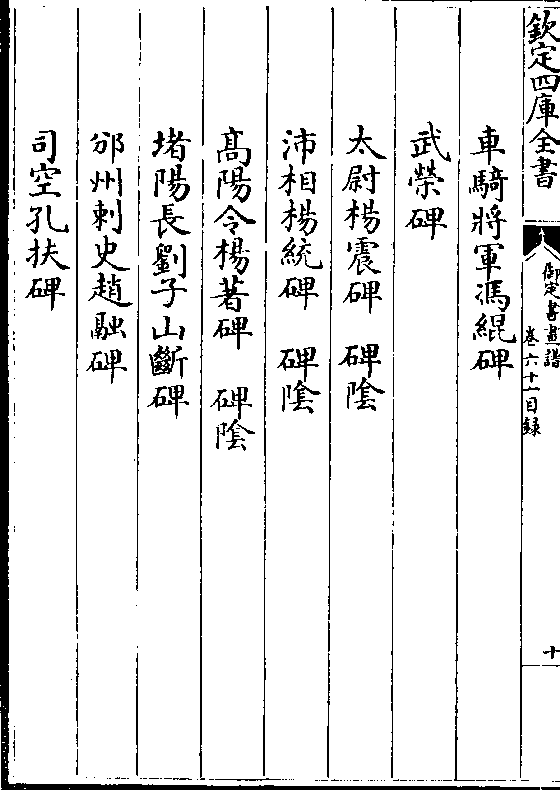 欽定四庫全書
御定書畫譜
卷六十一目録
十
車騎將軍馮緄碑
武榮碑
太尉楊震碑　碑隂
沛相楊統碑　碑隂
髙陽令楊著碑　碑隂
堵陽長劉子山斷碑
邠州刺史趙融碑
司空孔扶碑